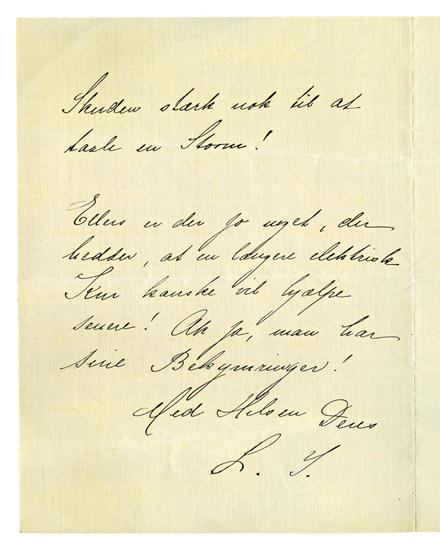 Skuden stærk nok til at
taale en Storm!
Ellers er der jo noget, der
hedder, at en længere elektrisk
Kur kanske vil hjælpe
senere! Ak ja, man har
sine Bekymringer!
Med Hilsen Deres
L. S.